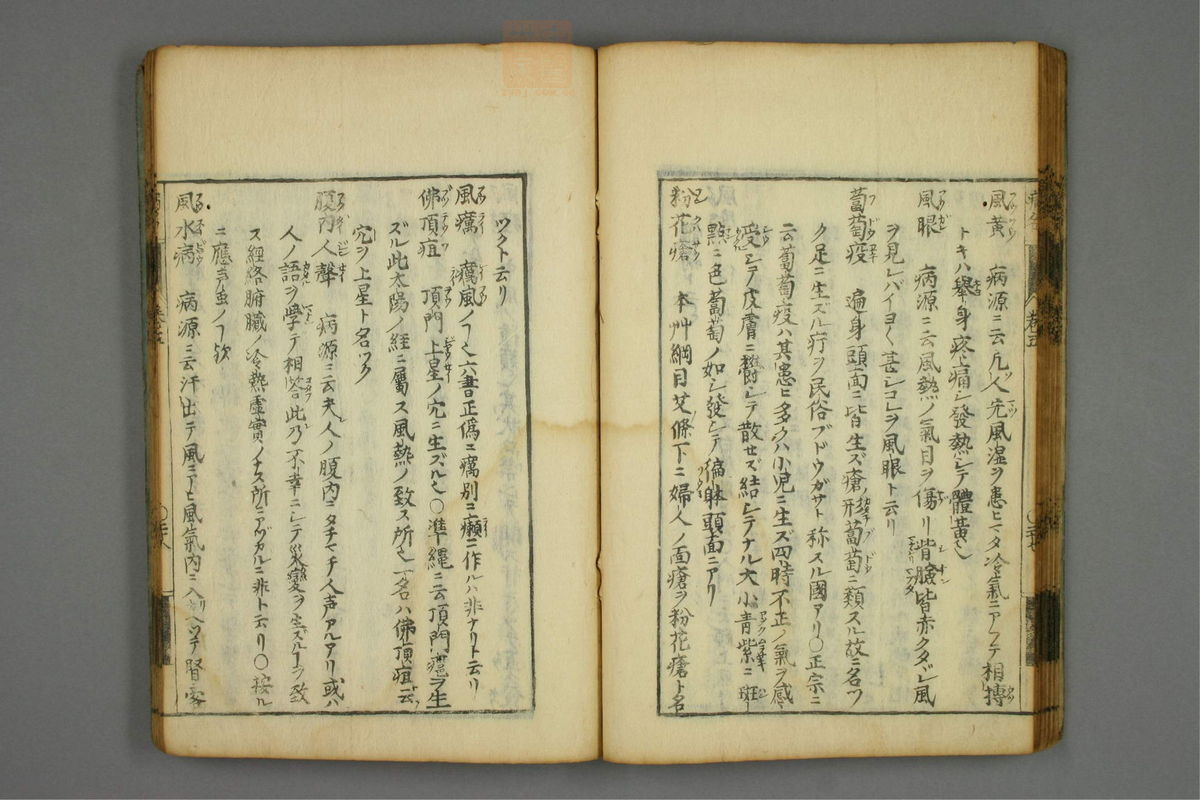 風黄 病源ニ云凡人先風湿ヲ患ヒマタ冷氣ニアフテ相摶
トキハ舉身疼痛シ發熱シテ體黄
風眼 病源ニ云風熱ノ氣目ヲ傷リ眥瞼皆赤クタヾレ風
ヲ見レバイヨ〱甚シコレヲ風眼ト云リ
葡萄疫 遍身頭面ニ皆生ズ瘡形葡萄ニ類スル故ニ名ツ
ク足ニ生ズル疔ヲ民俗ブドウガサト称スル國アリ〇正宗ニ
云葡萄疫ハ其患ヒ多クハ小児ニ生ズ四時不正ノ氣ヲ感
受シテ皮膚ニ鬱シテ散セズ結シテナル大小青紫ニ斑
點ニ色葡萄ノ如シ發シテ徧躰頭面ニアリ
粉花瘡 本艸綱目艾條下ニ婦人ノ面瘡ヲ粉花瘡ト名
ツクト云リ
風癘 癘風ノ六書正偽ニ癘別ニ癩ニ作ルハ非ナリト云リ
佛頂疽 頂門上星ノ穴ニ生ズル〇準縄ニ云頂門瘡ヲ生
ズル此太陽ノ經ニ屬ス風熱ノ致ス所一名ハ佛頂疽云
穴ヲ上星ト名ツク
腹内人聲 病源ニ云夫人ノ腹内ニタチマチ人声アルアリ或ハ
人ノ語ヲ學テ相答此乃不幸ニシテ災變ヲ生ズルヿヲ致
ス經絡腑臓ノ冷熱虚實ノナス所ニアツカルニ非ト云リ〇按ル
ニ應声虫ノ欤
風水病 病源ニ云汗出テ風ニアヒ風氣内ニ入